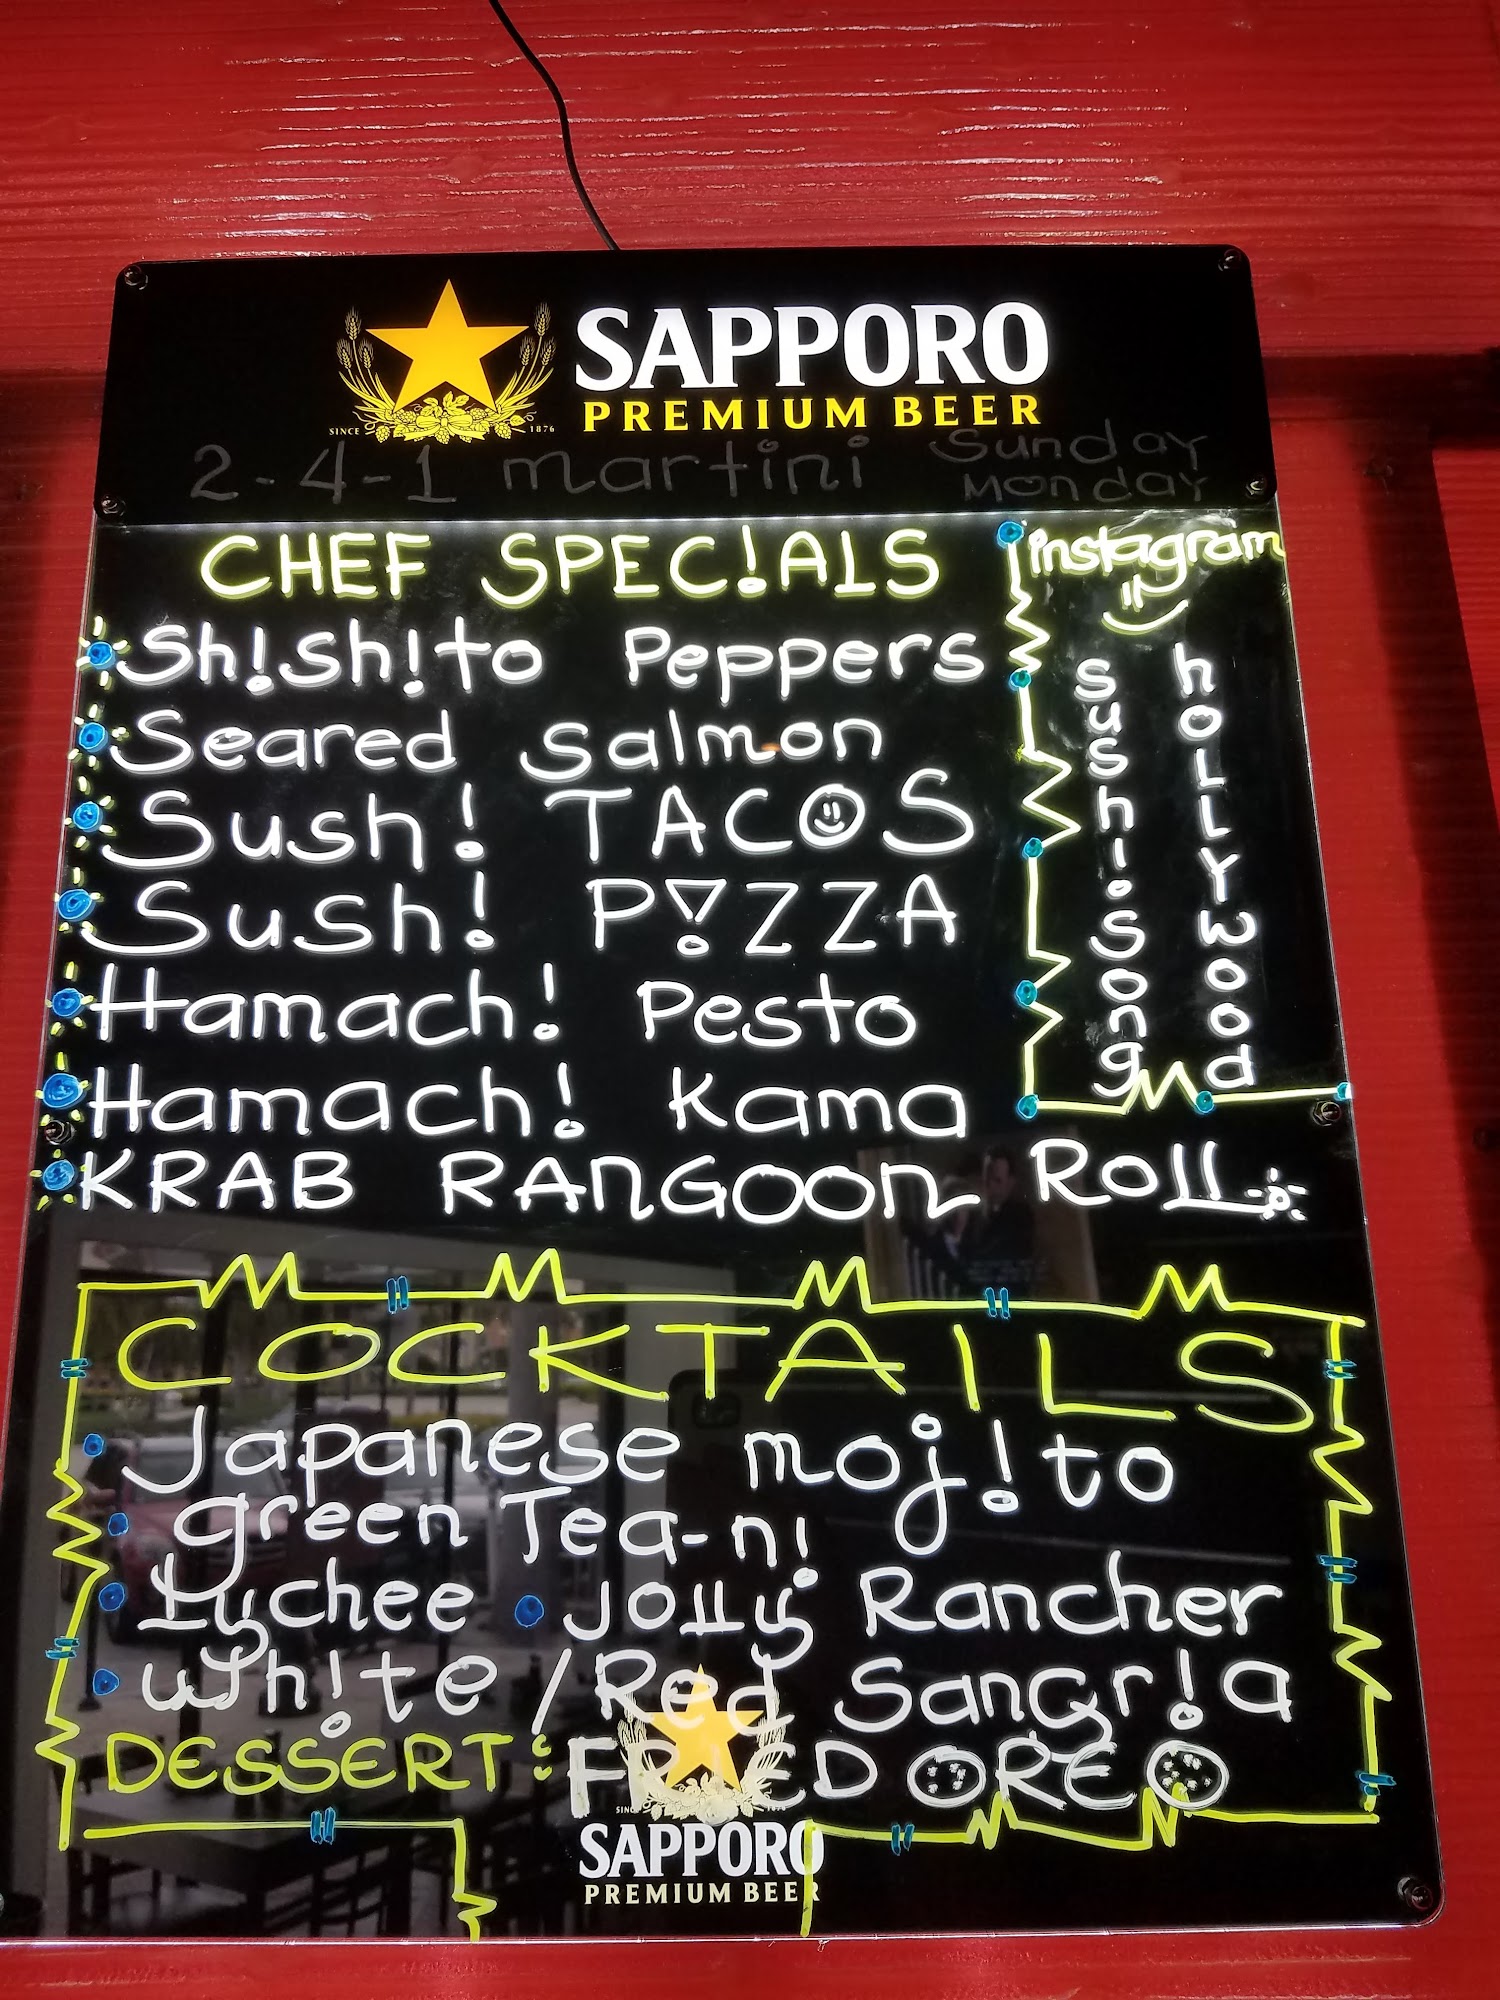 SAPPORO
PREMIUM BEER
SINCE 1876
2-4-1 martini Sunday Monday
CHEF SPEC!ALS
Sh!sh!to Peppers
Seared salmon
Sush! TACOS
Sush! P!ZZA
Hamach! Pesto
Hamach! Kama
KRAB RANGOON ROLL
instagram
sushisong
hollywood
COCKTAILS
Japanese moj!to
green Tea-n!
Lychee • Jolly Rancher
wh!te / Red Sangr!a
DESSERT: FRIED OREO
SAPPORO
PREMIUM BEER